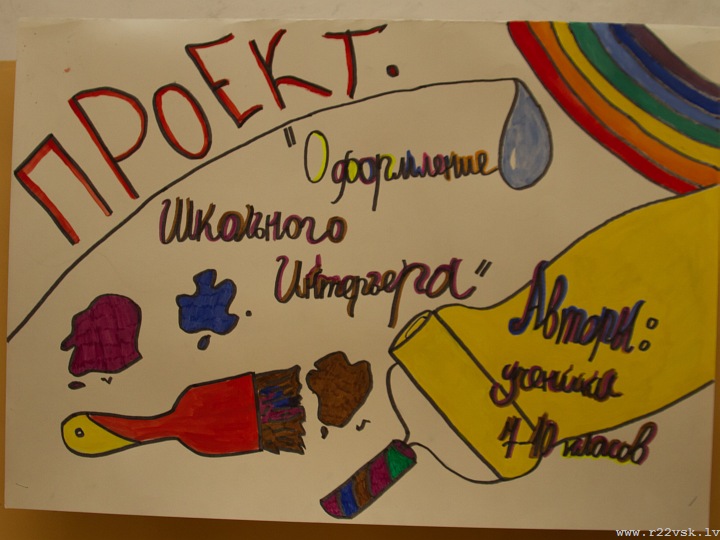 ПРОЕКТ.
"Оформление
Школьного
Интерьера"
Авторы:
ученики
7-10 классов
www.r22vsk.lv